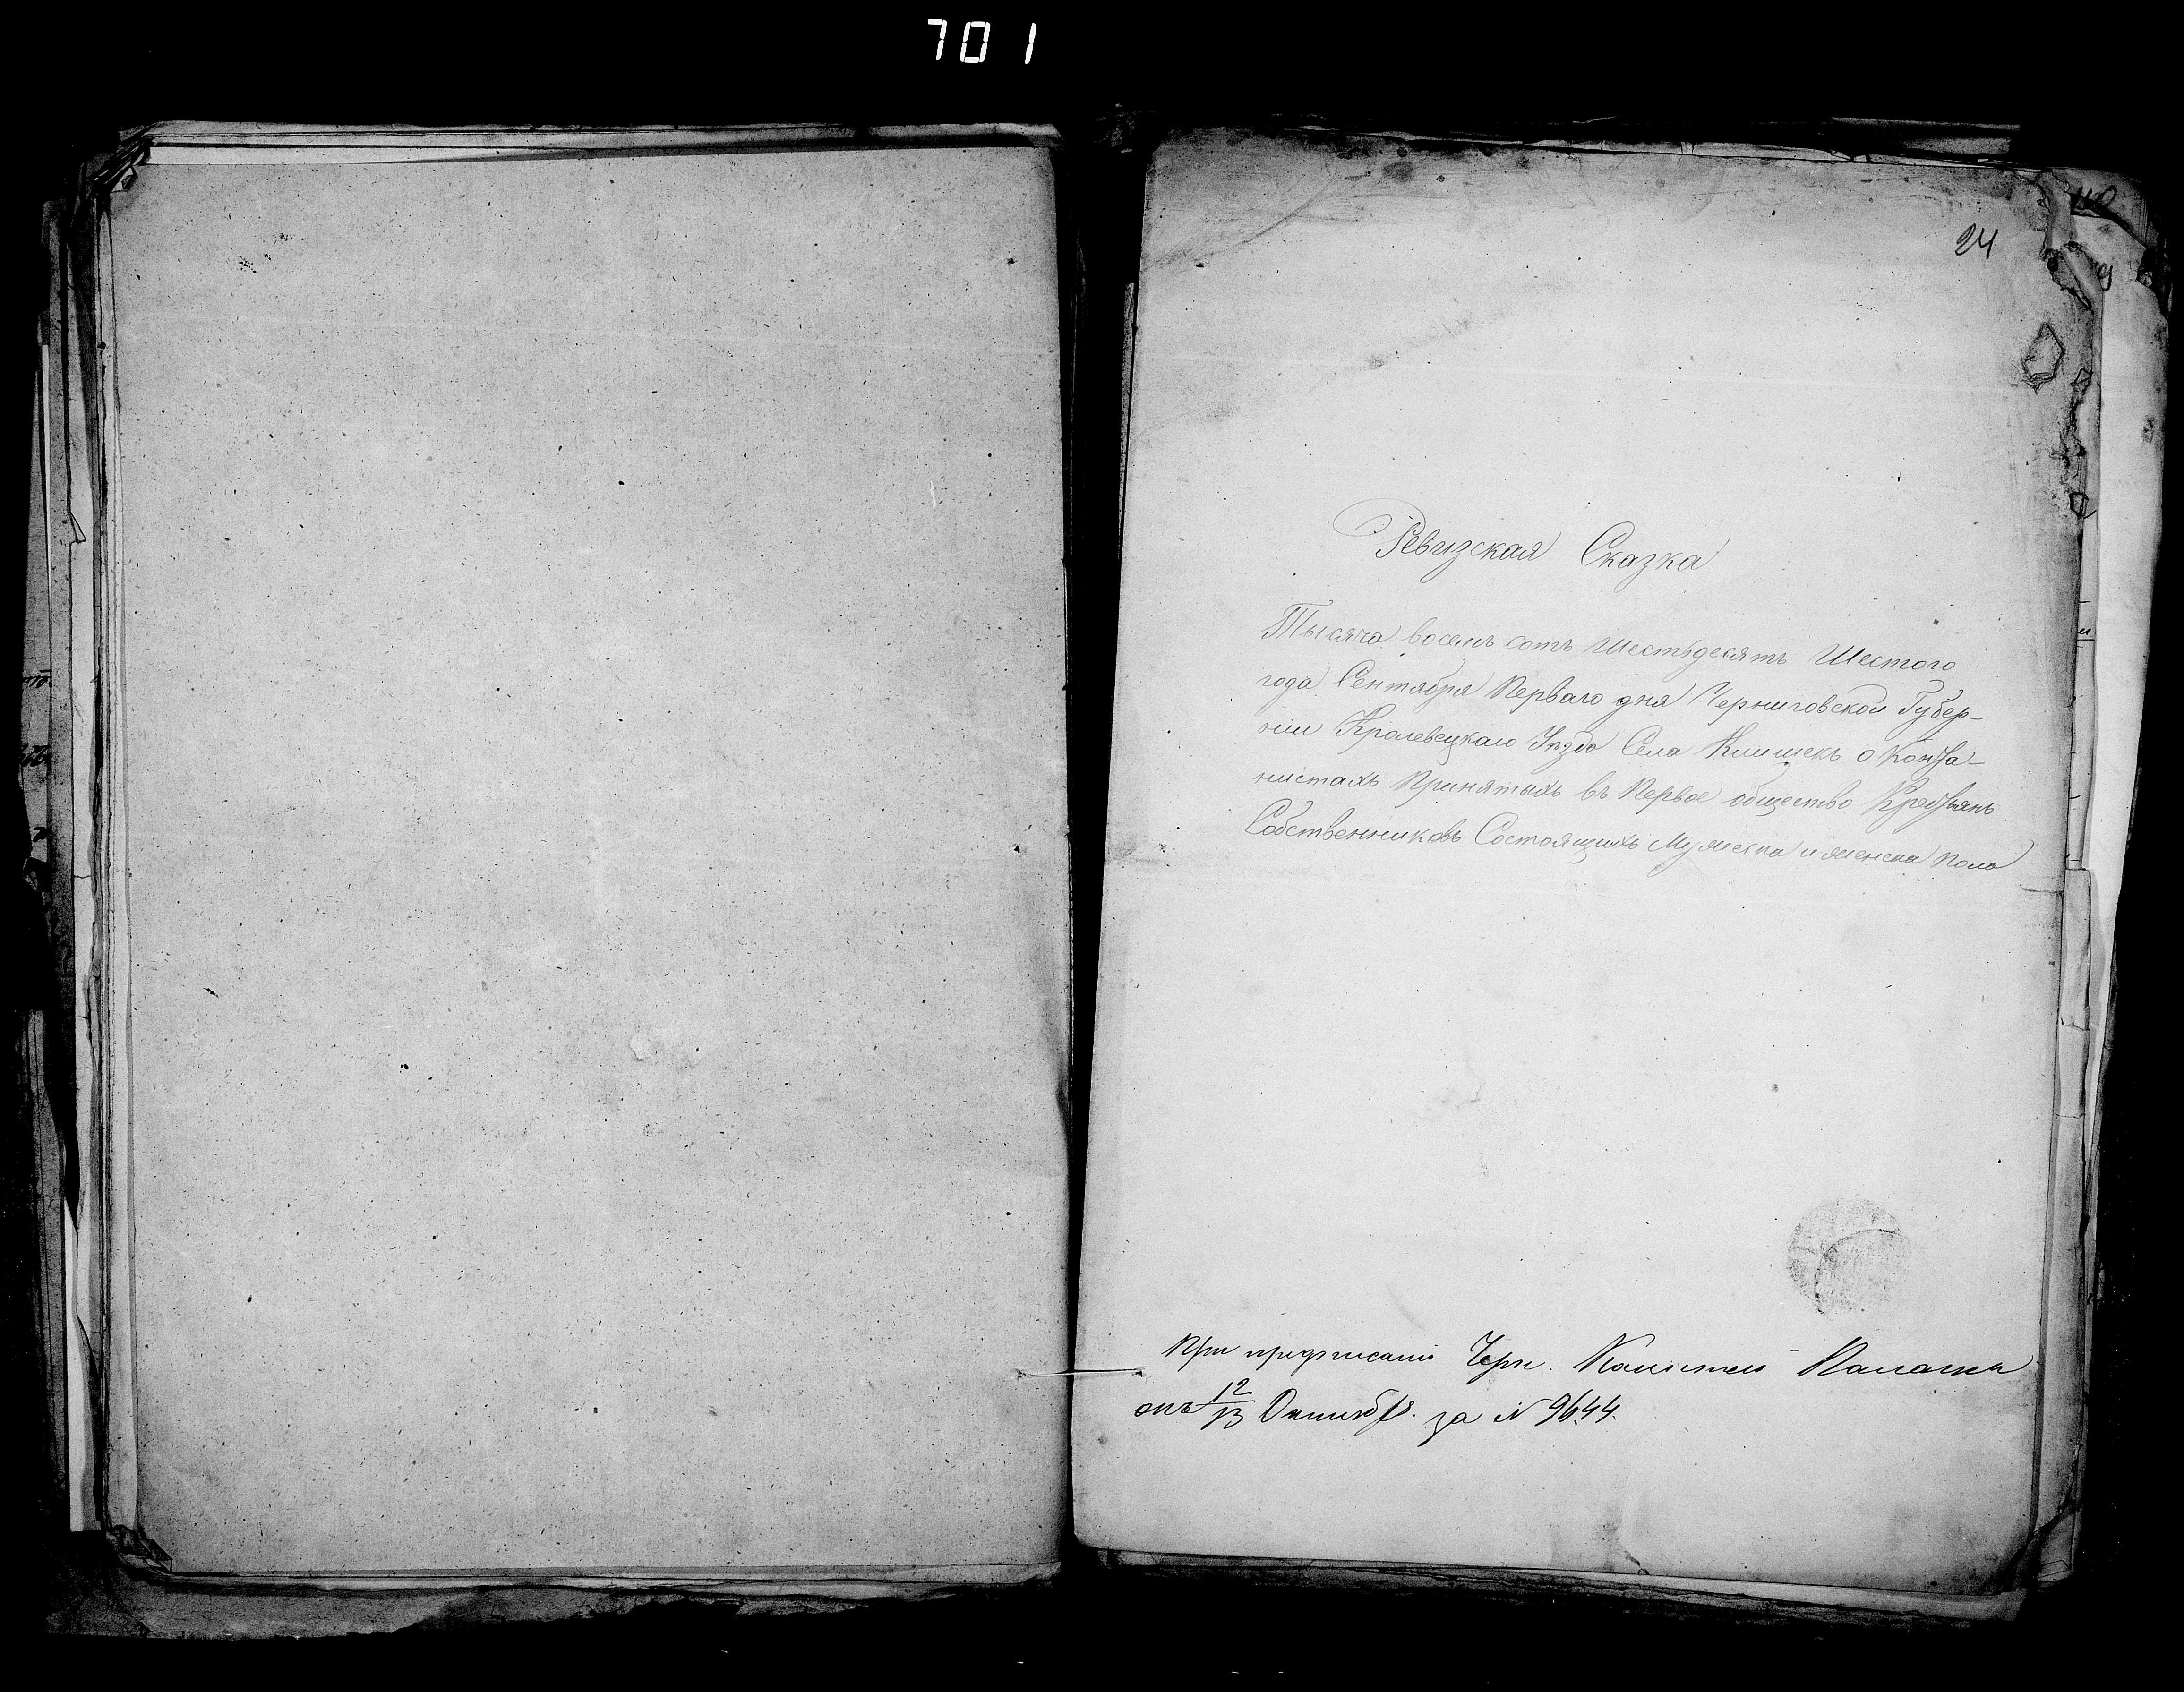 701
24
Ревизская Сказка
Тысяча восемь сотъ Шестьдесятъ Шестого
года Сентября Перваго дня Черниговской Губер-
ніи Кролевецкаго Уѣзда Села Клишекъ о Конто-
нистахъ Принятыхъ въ Первое общество Крестьянъ
Собственниковъ Состоящихъ Мужеска и женска пола
При предписаніи Черн. Казенной Палаты
отъ 12/13 Октября за N 9644.